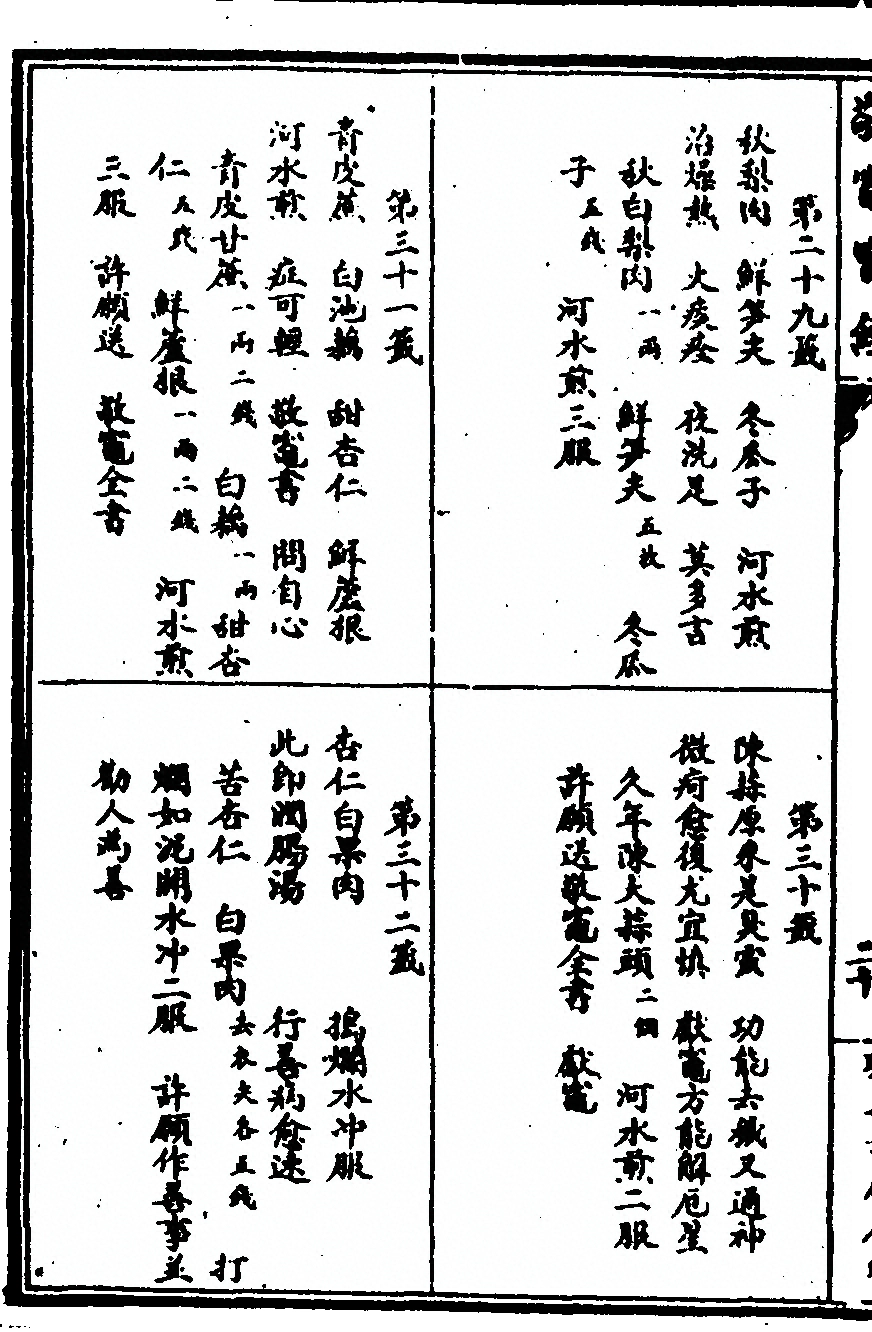 第二十九籤
秋梨肉　鮮笋尖　冬瓜子　河水煎
治燥熱　火痰痊　夜洗足　莫多言
秋白梨肉一兩　鮮笋尖五枚　冬瓜
子五錢　河水煎三服
第三十籤
陳蒜原來是臭靈　功能去穢又通神
微疴愈後尤宜慎　獻竈方能解厄星
久年陳大蒜頭二個　河水煎二服
許願送敬竈全書　獻竈
第三十一籤
青皮蔗　白池藕　甜杏仁　鮮蘆根
河水煎　症可輕　敬竈書　問自心
青皮甘蔗一兩二錢　白藕一兩　甜杏
仁五錢　鮮蘆根一兩二錢　河水煎
三服　許願送　敬竈全書
第三十二籤
杏仁白果肉　搗爛水冲服
此即潤腸湯　行善病愈速
苦杏仁　白果肉去衣尖各五錢　打
爛如泥開水冲二服　許願作善事並
勸人為善
二十